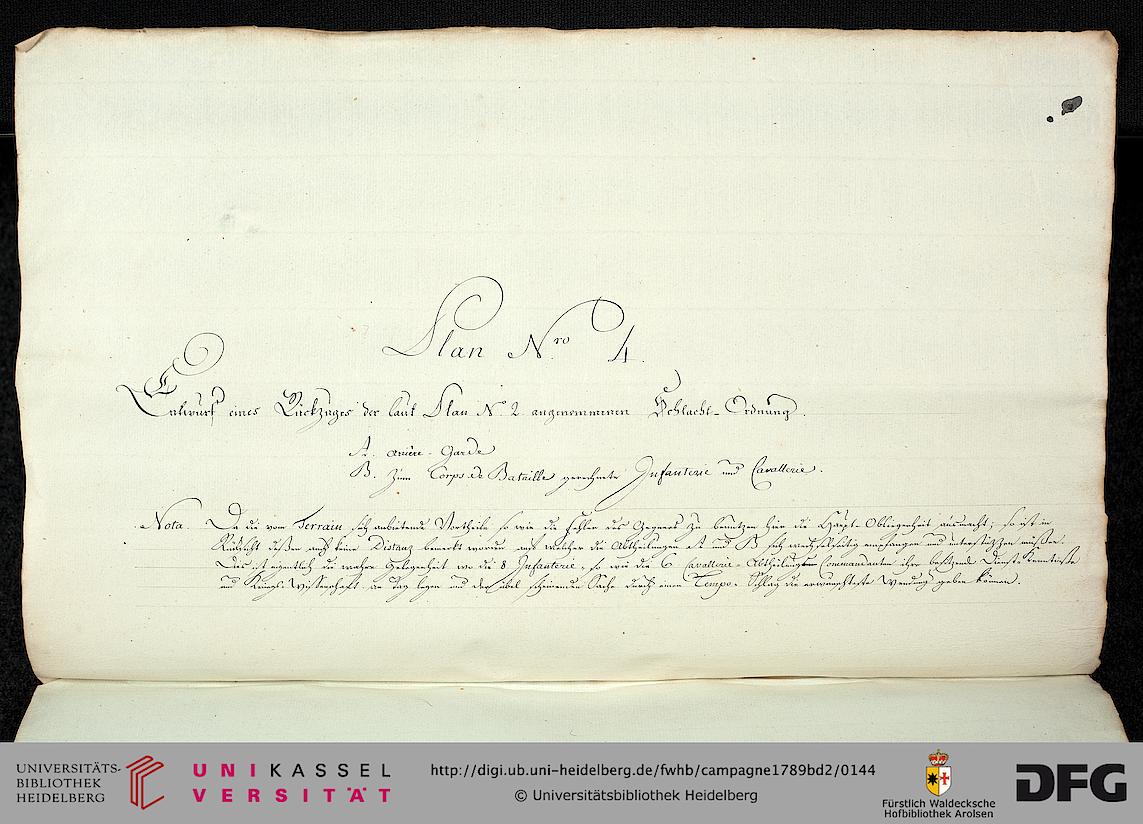 Plan Nro 4.
Entwurf eines Rückzuges der laut Plan No 2 angenommenen Schlacht-Ordnung.
A. Arriere-Garde
B. Zum Corps de Bataille gerechnete Infanterie und Cavallerie.
Nota. Da die vom Terrain sich anbietende Vortheile so wie die Fehler des Gegners zu benutzen hier die Haupt-Obliegenheit ausmacht; so ist in
Rücksicht deßen auch keine Distanz bemerkt worden auf welcher die Abtheilungen A und B sich wechselseitig empfangen und unterstützen müßen.
Dies ist eigentlich die wahre Gelegenheit wo die 8 Infanterie, so wie die 6 Cavallerie-Abtheilungs Commandanten ihre besitzende Dienst-Kenntniße
und Kriegs-Wissenschaft an Tag legen und der übel scheinenden Sache durch einen Tempo-Schlag die erwünschteste Wendung geben können.
UNIVERSITÄTS-
BIBLIOTHEK
HEIDELBERG
UNIKASSEL
VERSITÄT
http://digi.ub.uni-heidelberg.de/fwhb/campagne1789bd2/0144
© Universitätsbibliothek Heidelberg
Fürstlich Waldecksche
Hofbibliothek Arolsen
DFG